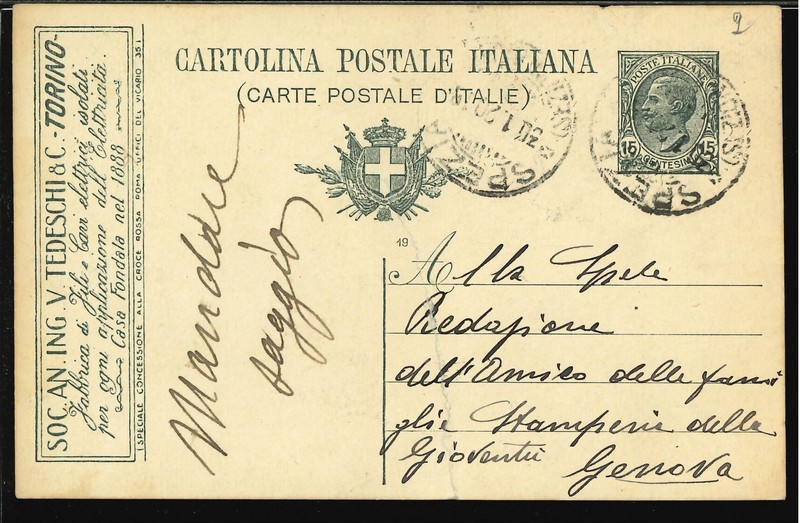 2
CARTOLINA POSTALE ITALIANA
(CARTE POSTALE D'ITALIE)
POSTE ITALIANE
15 CENTESIMI 15
SPEZIA
30.1.20
SPEZIA
SOC. AN. ING. V. TEDESCHI & C. - TORINO -
Fabbrica di Fili e Cavi elettrici isolati
per ogni applicazione dell'Elettricità.
Casa Fondata nel 1888
ESPECIALE CONCESSIONE ALLA CROCE ROSSA ROMA UFFICI DEL VICARIO 35
Mandare
saggio
19
Alla Spele
Redazione
dell'Amico delle fami
glie Stamperia della
Gioventù
Genova